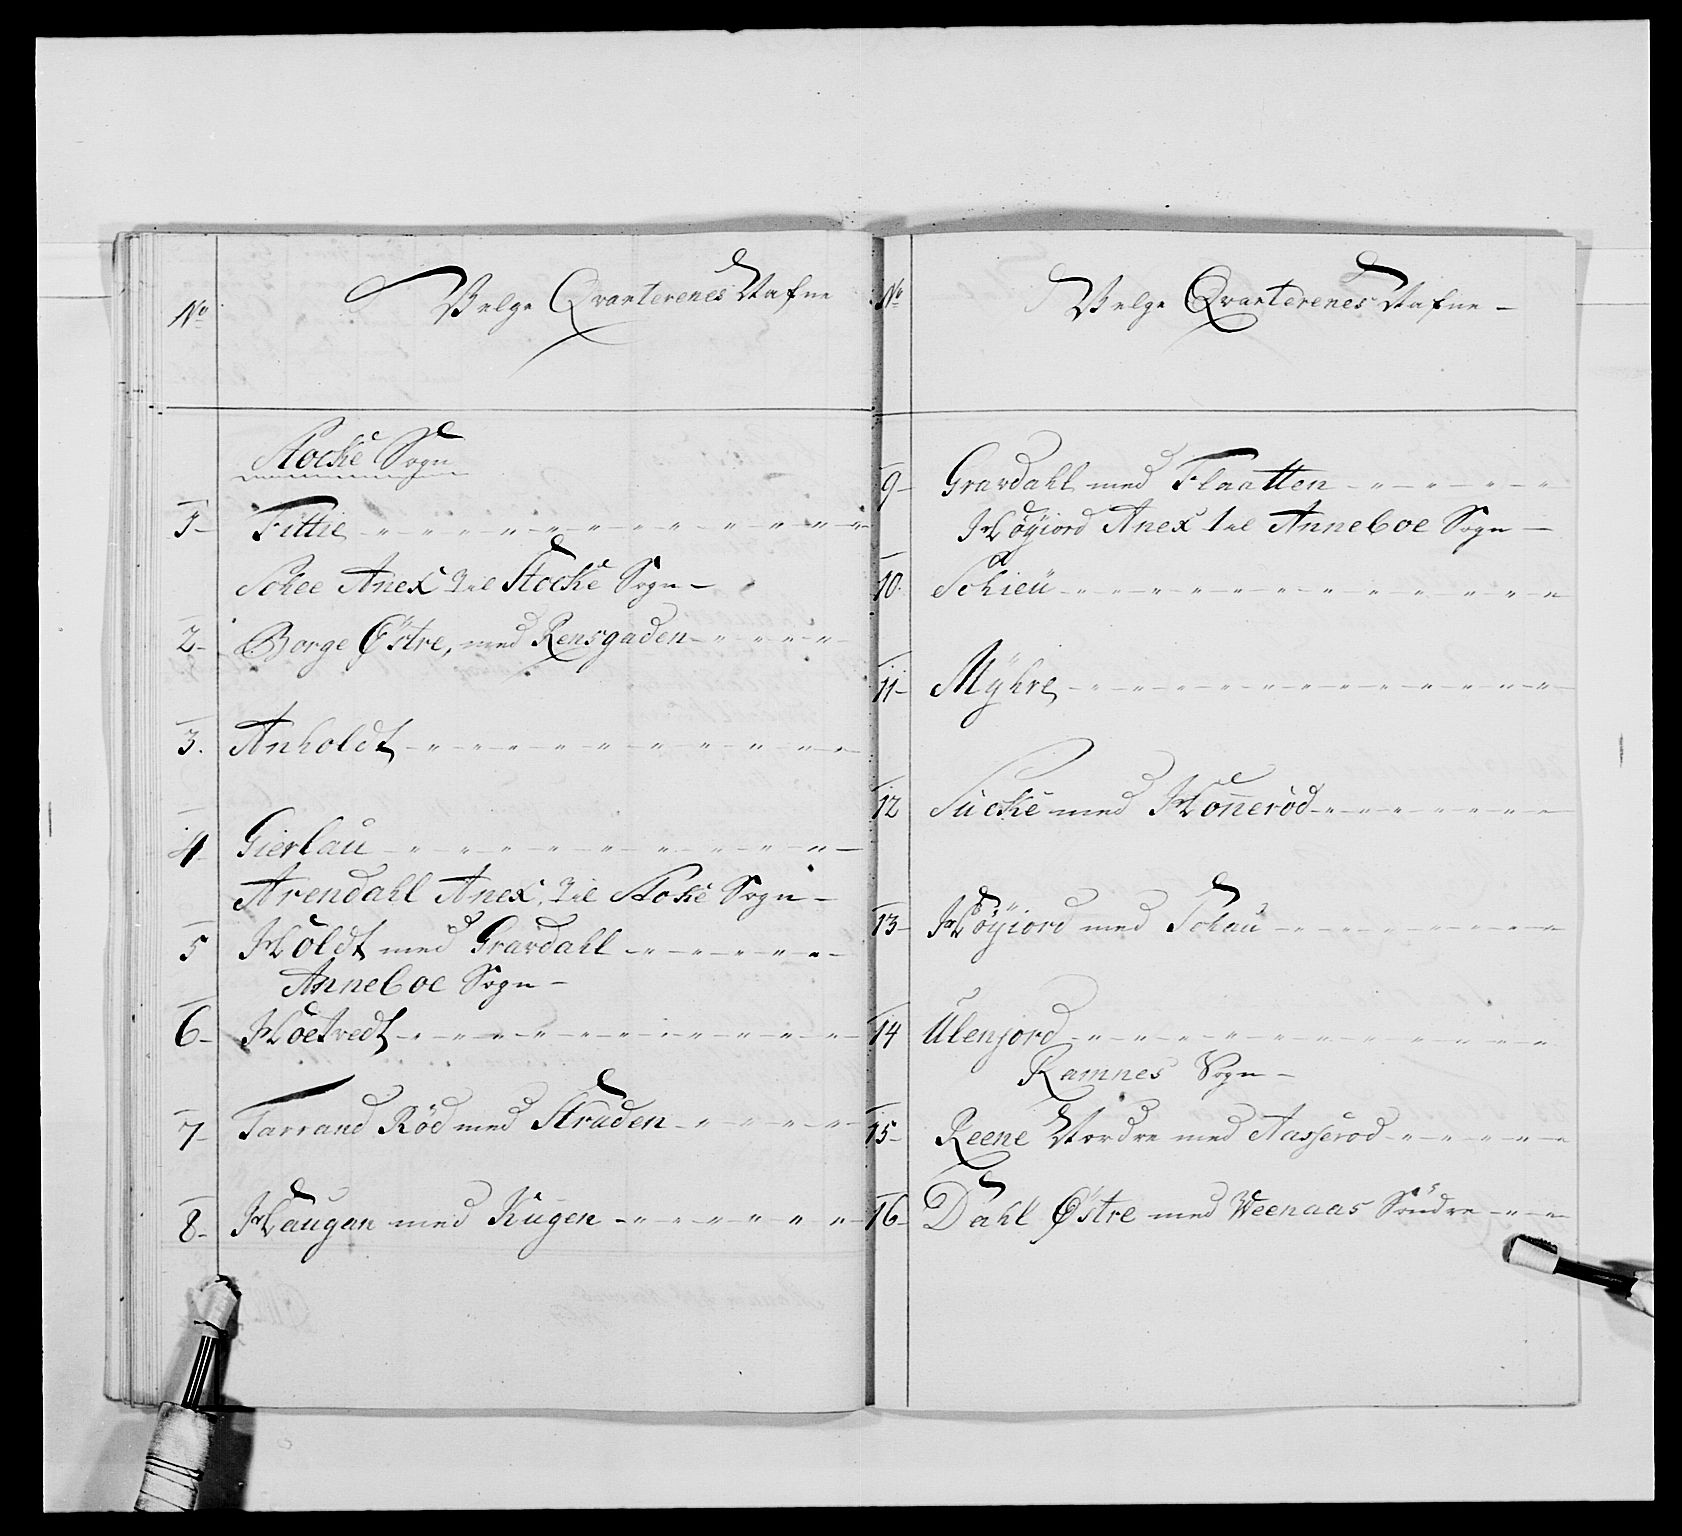 No
Velge Qvarterenes Nafne
Stocke Sogn
1- Fittie
Schee Anex Til Stocke Sogn -
2- Borge Östre, med Rensgaden
3. Anholdt
4 Gierlau
Arendahl Anex, Til Stoke Sogn -
5 Holdt med Gravdahl
Anneboe Sogn -
6- Höetvedt
7- Tarrand Röd med Straden
8- Haugan med Kugen
No
Velge Qvarterenes Nafne -
9- Gravdahl med Flaatten
Höyiord Anex til Anneboe Sogn -
10. Schieü
11- Mÿhre
12 Sucke med Honneröd
13- Höÿiord med Schau
14 Ulenjord
Ramnes Sogn -
15- Reene Nordre med Aasserod
16- Dahl Östre med Weenaas Söndre